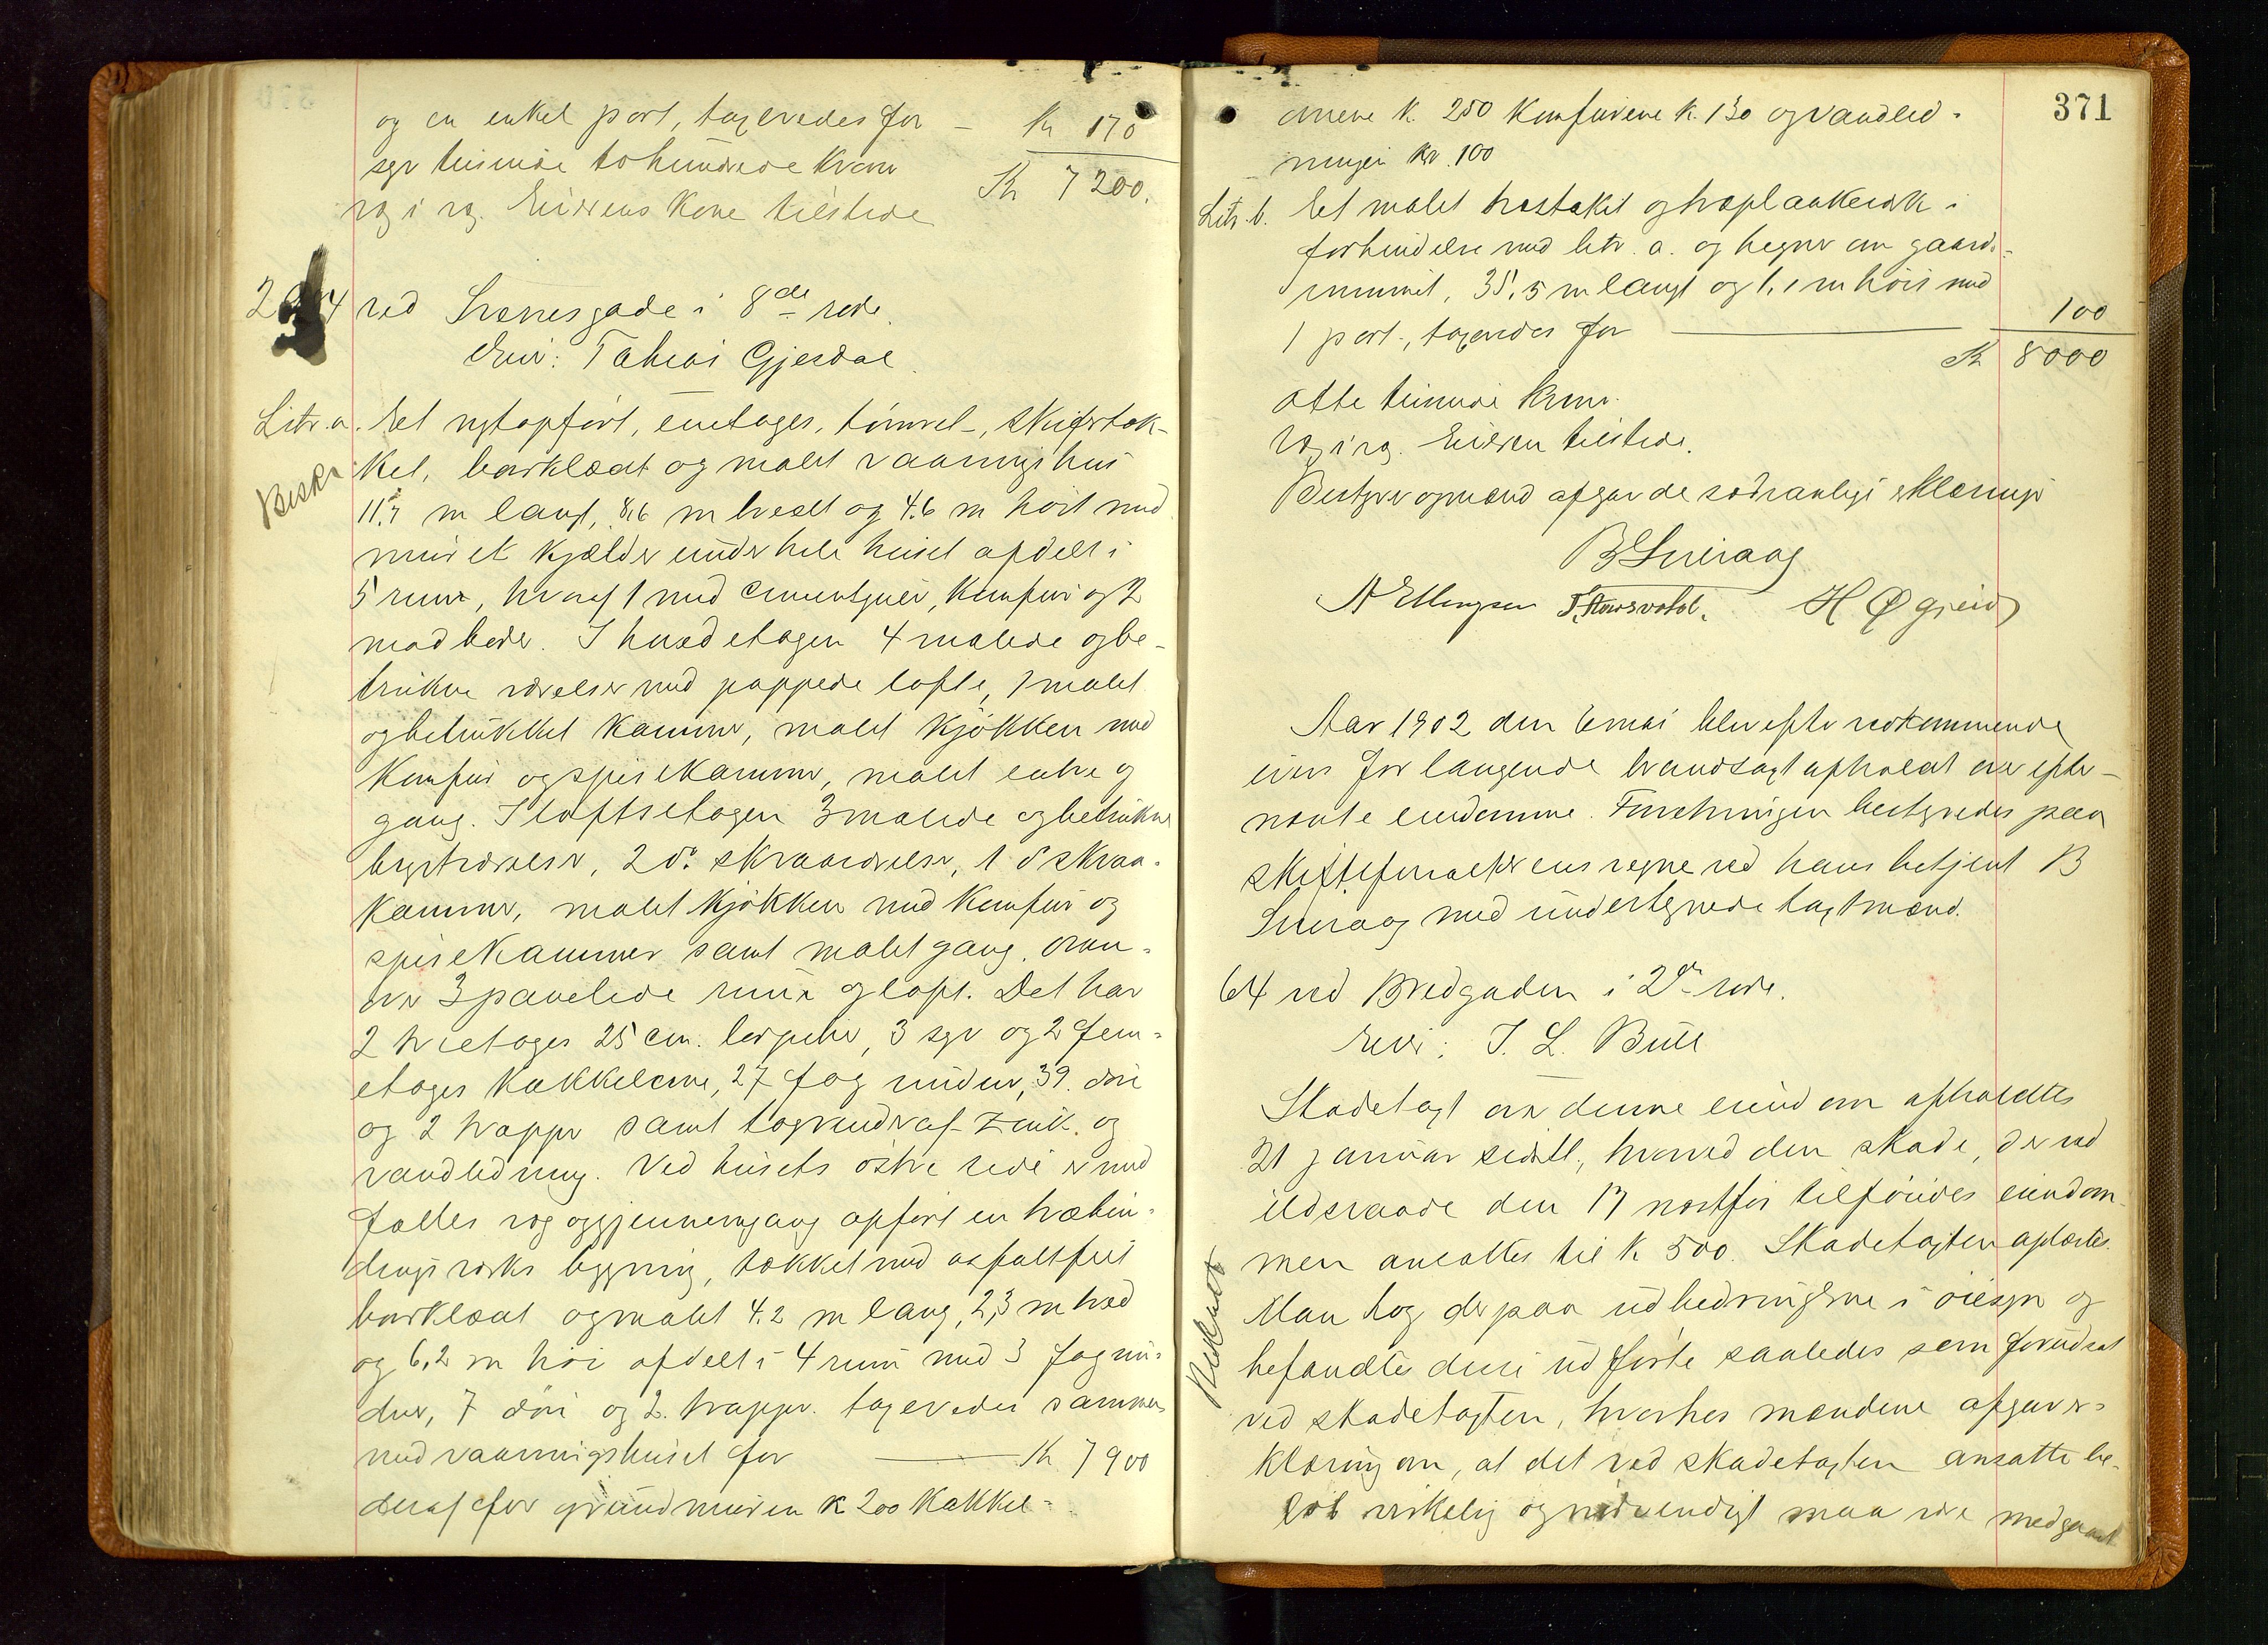 og en enkel port, taxeredes for — Kr 170
syv tusinde tohundrede kroner Kr 7200.
Eierens kone tilstede
ved Svenesgade i 8de rode.
Eier: Tobias Gjesdal
Litr. a. Et nytopført, enetages, tømret-, skifertæk-
Beskr ket, bordklædt og malet vaaningshus
11,7 m langt, 8,6 m bredt og 4.6 m høit med
muret kjælder under hele huset afdelt i
5 rum, hvoraf 1 med cementgulv, komfur og 2
madboder. I hovedetagen 4 malede og be-
trukne værelser med pappede lofte, 1 malet
og betrukket kammer, malet kjøkken med
komfur og spisekammer, malet entre og
gang. I loftsetagen 3 malede og betrukne
kvistværelser, 2 do skraaværelser, 1 do skraa-
kammer, malet kjøkken med komfur og
spisekammer samt malet gang, oven-
over 3 panelede rum og loft. Det har
2 treetages 25 cm. lerpiber, 3 syv og 2 fem-
etages kakkelovne, 27 fag vinduer, 39 døre
og 2 trapper samt tagrender af zink og
vandledning. Ved husets østre side er med
fælles væg og gjennemgang opført en træbin-
dingsværks bygning, tækket med asfaltfilt
bordklædt og malet 4.2 m lang, 2,3 m bred
og 6,2 m høi afdelt i 4 rum med 3 fag vin-
duer, 7 døre og 2 trapper. taxeredes sammen
med vaaningshuset for — Kr 7900
deraf for grundmuren k 200 kakkel-
371
ovnene k. 250 komfurene k. 130 og vandled-
ningen kr. 100
Litr. b. Et malet træstakit og træplankeværk i
forbindelse med litr. a. og hegner om gaards-
rummet, 35,5 m langt og 1,1 m høit med
1 port, taxeredes for — 100
Kr 8000
otte tusinde kroner.
Eieren tilstede.
Bestyrer og mænd afgav de sædvanlige erklæringer
B Sneraag
A Ellingsen T. Aarsvold. H Øgreid
Aar 1902 den 6 mai blev efter vedkommende
eiers forlangende brandtaxt afholdt over efter-
nævnte eiendomme. Forretningen bestyredes paa
skifteforvalterens vegne ved hans betjent B
Sneraag med undertegnede taxtmænd.
64 ved Bredgaden i 2den rode.
Eier: J. L. Bull
Skadetaxt over denne eiendom afholdtes
21 januar sidstl., hvorved den skade, der ved
ildsvaade den 17 næstfør tilføiedes eiendom-
men ansattes til k 500. Skadetaxten oplæstes.
Man tog derpaa udbedringerne i øiesyn og
befandtes disse udførte saaledes som forudsat
ved skadetaxten, hvorhos mændene afgav er-
klæring om, at det ved skadetaxten ansatte be-
løb virkelig og nødvendigt maa være medgaaet